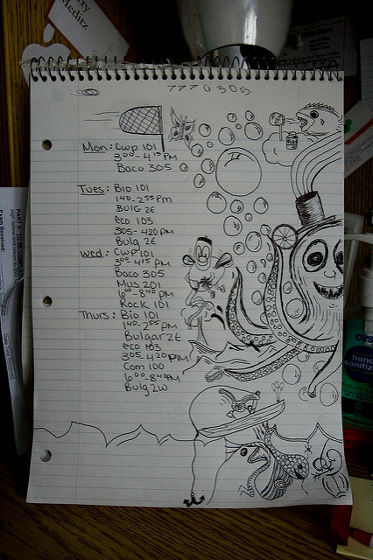 rry
Meditz
777 6305
Mon: CWP 101
3:00-4:15 PM
Baco 305
Tues: Bio 101
1:40-2:55 PM
Bulg 2E
eco 103
305-420 PM
Bulg 2E
Wed: CWP 101
3:00-4:15 PM
Baco 305
Mus 201
6:00-8:40 PM
Rock 101
Thurs: Bio 101
1:40-2:55 PM
Bulgar 2E
eco 103
305-420 PM
Com 100
6:00-8:40 PM
Bulg 2W
hand
sanitiz